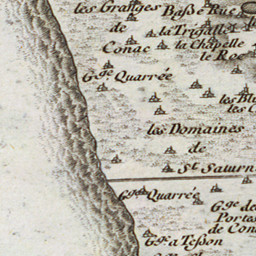 les Granges
Basse Rue
de
la Trigalle
Conac
la Chapelle
le Roc
Gge Quarrée
les
les Domaines
de
St Saturn
Gge Quarrée
Gge des
Portes
de Con
Gge a Tesson